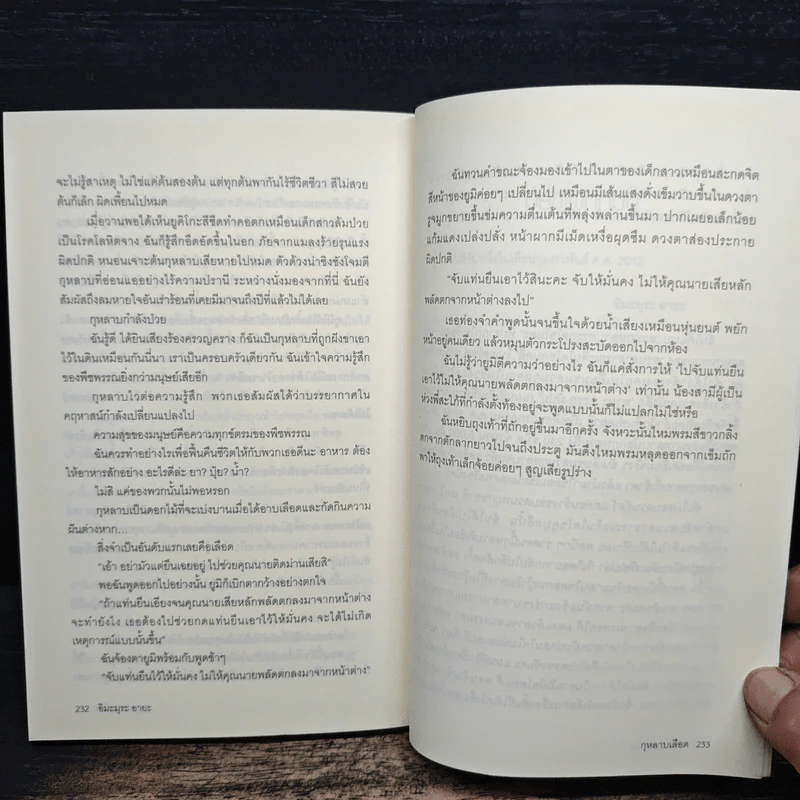 จะไม่รู้สาเหตุ ไม่ใช่แค่ต้นสองต้น แต่ทุกต้นพากันไร้ชีวิตชีวา สีไม่สวย
ต้นก็เล็ก ผิดเพี้ยนไปหมด
เมื่อวานพอได้เห็นยูคิโกะสีซีดทำคอตกเหมือนเด็กสาวล้มป่วย
เป็นโรคโลหิตจาง ฉันก็รู้สึกอึดอัดขึ้นในอก ภัยจากแมลงร้ายรุนแรง
ผิดปกติ หนอนเจาะต้นกุหลาบเสียหายไปหมด ตัวด้วงน่าชิงชังโจมตี
กุหลาบที่อ่อนแออย่างไร้ความปรานี ระหว่างนั่งมองจากที่นี่ ฉันยัง
สัมผัสถึงลมหายใจอันเร่าร้อนที่เคยมีมาจนถึงปีที่แล้วไม่ได้เลย
กุหลาบกำลังป่วย
ฉันรู้ดี ได้ยินเสียงร้องครวญคราง ก็ฉันเป็นกุหลาบที่ถูกฝังขาเอา
ไว้ในดินเหมือนกันนี่นา เราเป็นครอบครัวเดียวกัน ฉันเข้าใจความรู้สึก
ของพืชพรรณยิ่งกว่ามนุษย์เสียอีก
กุหลาบไวต่อความรู้สึก พวกเธอสัมผัสได้ว่าบรรยากาศใน
คฤหาสน์กำลังเปลี่ยนแปลงไป
ความสุขของมนุษย์คือความทุกข์ตรมของพืชพรรณ
ฉันควรทำอย่างไรเพื่อฟื้นคืนชีวิตให้กับพวกเธอดีนะ อาหาร ต้อง
ให้อาหารสักอย่าง อะไรดีล่ะ ยา? ปุ๋ย? น้ำ?
ไม่สิ แค่ของพวกนั้นไม่พอหรอก
กุหลาบเป็นดอกไม้ที่จะเบ่งบานเมื่อได้อาบเลือดและกัดกินความ
ฝันต่างหาก...
สิ่งจำเป็นอันดับแรกเลยคือเลือด
"เอ้า อย่ามัวแต่ยืนเฉยอยู่ ไปช่วยคุณนายติดม่านเสียสิ"
พอฉันพูดออกไปอย่างนั้น ยูมิก็เบิกตากว้างอย่างตกใจ
"ถ้าแท่นยืนเอียงจนคุณนายเสียหลักพลัดตกลงมาจากหน้าต่าง
จะทำยังไง เธอต้องไปช่วยกดแท่นยืนเอาไว้ให้มั่นคง จะได้ไม่เกิด
เหตุการณ์แบบนั้นขึ้น"
ฉันจ้องตายูมิพร้อมกับพูดช้าๆ
"จับแท่นยืนไว้ให้มั่นคง ไม่ให้คุณนายพลัดตกลงมาจากหน้าต่าง"
232 อิมะมุระ อายะ
ฉันทวนคำขณะจ้องมองเข้าไปในตาของเด็กสาวเหมือนสะกดจิต
สีหน้าของยูมิค่อยๆ เปลี่ยนไป เหมือนมีเส้นแสงดั่งเข็มวาบขึ้นในดวงตา
รูจมูกขยายขึ้นข่มความตื่นเต้นที่พลุ่งพล่านขึ้นมา ปากเผยอเล็กน้อย
แก้มแดงเปล่งปลั่ง หน้าผากมีเม็ดเหงื่อผุดซึม ดวงตาส่องประกาย
ผิดปกติ
"จับแท่นยืนเอาไว้สินะคะ จับให้มั่นคง ไม่ให้คุณนายเสียหลัก
พลัดตกจากหน้าต่างลงไป"
เธอท่องจำคำพูดนั้นจนขึ้นใจด้วยน้ำเสียงเหมือนหุ่นยนต์ พยัก
หน้าอยู่คนเดียว แล้วหมุนตัวกระโปรงสะบัดออกไปจากห้อง
ฉันไม่รู้ว่ายูมิตีความว่าอย่างไร ฉันก็แค่สั่งการให้ 'ไปจับแท่นยืน
เอาไว้ไม่ให้คุณนายพลัดตกลงมาจากหน้าต่าง' เท่านั้น น้องสามีผู้เป็น
ห่วงพี่สะใภ้ที่กำลังตั้งท้องอยู่จะพูดแบบนั้นก็ไม่แปลกไม่ใช่หรือ
ฉันหยิบถุงเท้าที่ถักอยู่ขึ้นมาอีกครั้ง จังหวะนั้นไหมพรมสีขาวกลิ้ง
ตกจากตักลากยาวไปจนถึงประตู มันดึงไหมพรมหลุดออกจากเข็มถัก
พาให้ถุงเท้าเล็กจ้อยค่อยๆ สูญเสียรูปร่าง
กุหลาบเลือด 233